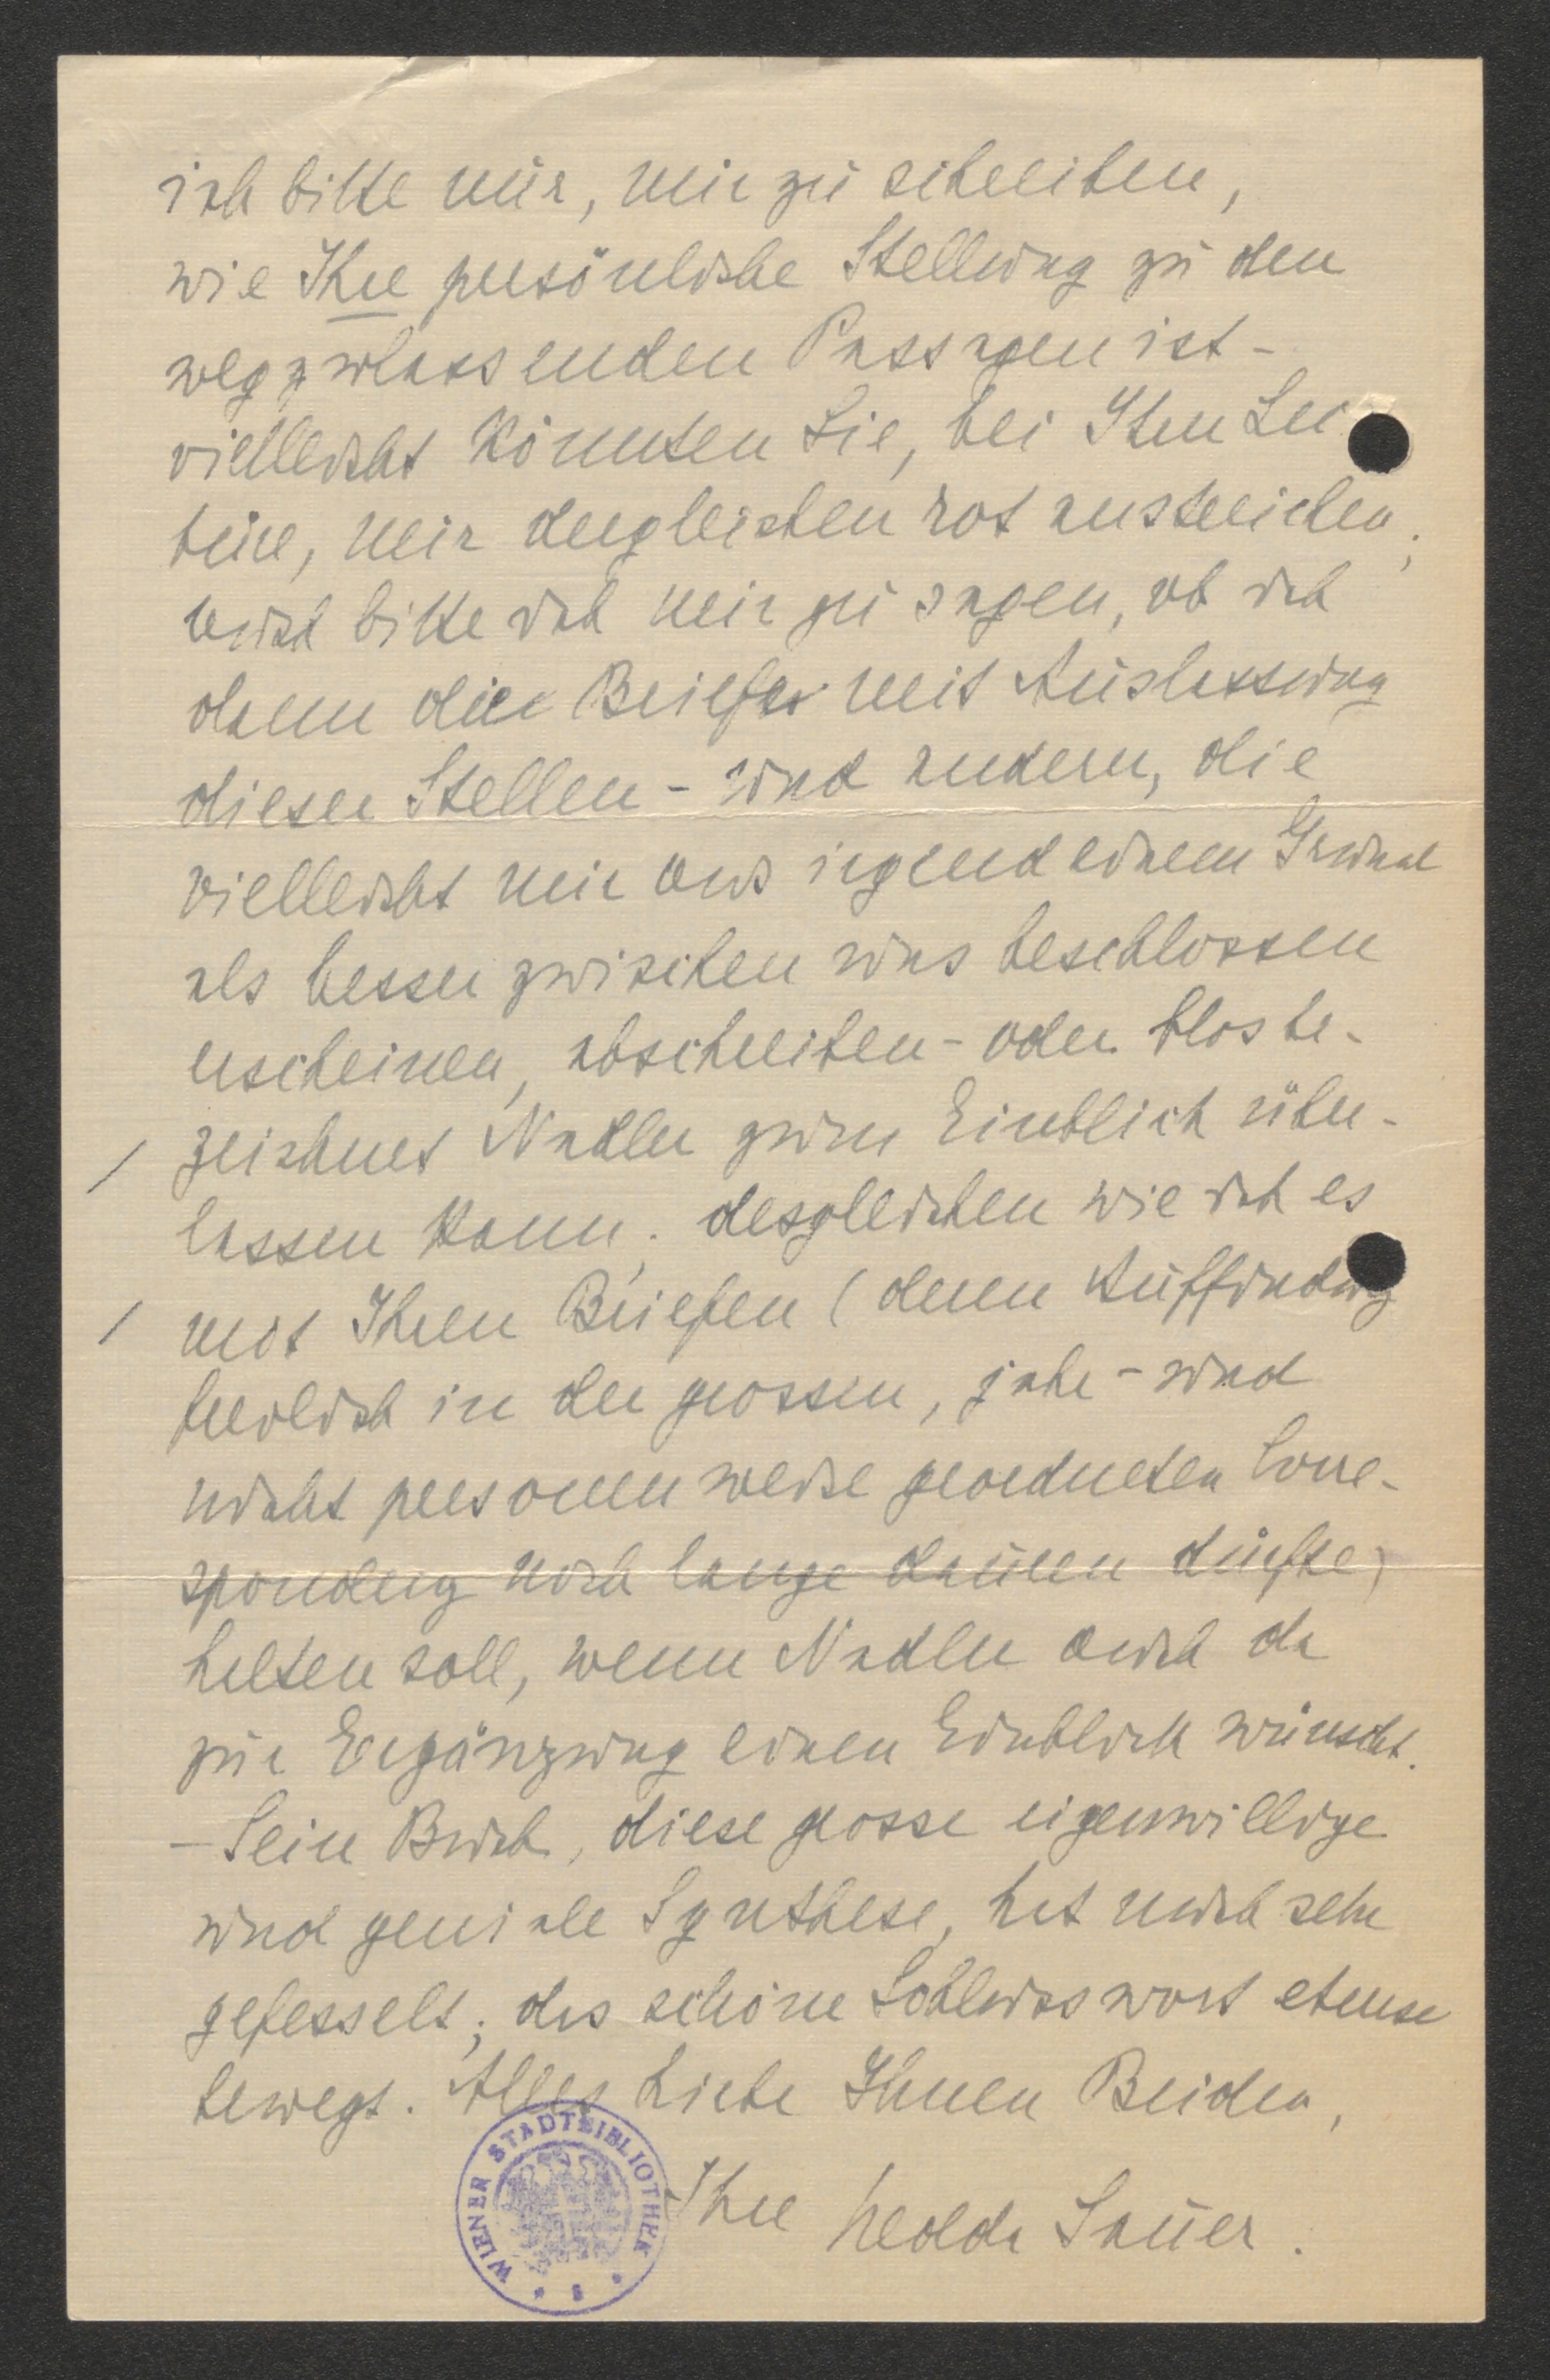 ich bitte nur, mir zu schreiben,
wie Ihre persönliche Stellung zu den
wegzulassenden Passagen ist -
vielleicht könnten Sie, bei Ihrer Lec-
türe, mir dergleichen rot anstreichen;
auch bitte ich mir zu sagen, ob ich
dann die Briefe mit Auslassung
dieser Stellen - und andern, die
vielleicht mir aus irgend einem Grund
als besser zwischen uns beschlossen
erscheinen, abschreiben - oder blos be-
zeichnet Nadler zum Einblick über-
lassen kann; desgleichen wie ich es
mit Ihren Briefen (deren Auffindung
freilich in der grossen, jahr- und
nicht personenweise geordneten Corre-
spondenz noch lange dauern dürfte)
halten soll, wenn Nadler auch da
zur Ergänzung einen Einblick wünscht.
- Sein Buch, diese grosse eigenwillige
und geniale Synthese, hat mich sehr
gefesselt; das schöne Schlusswort ebenso
bewegt. Alles Liebe Ihnen Beiden,
Ihre Hedda Sauer.
WIENER STADTBIBLIOTHEK